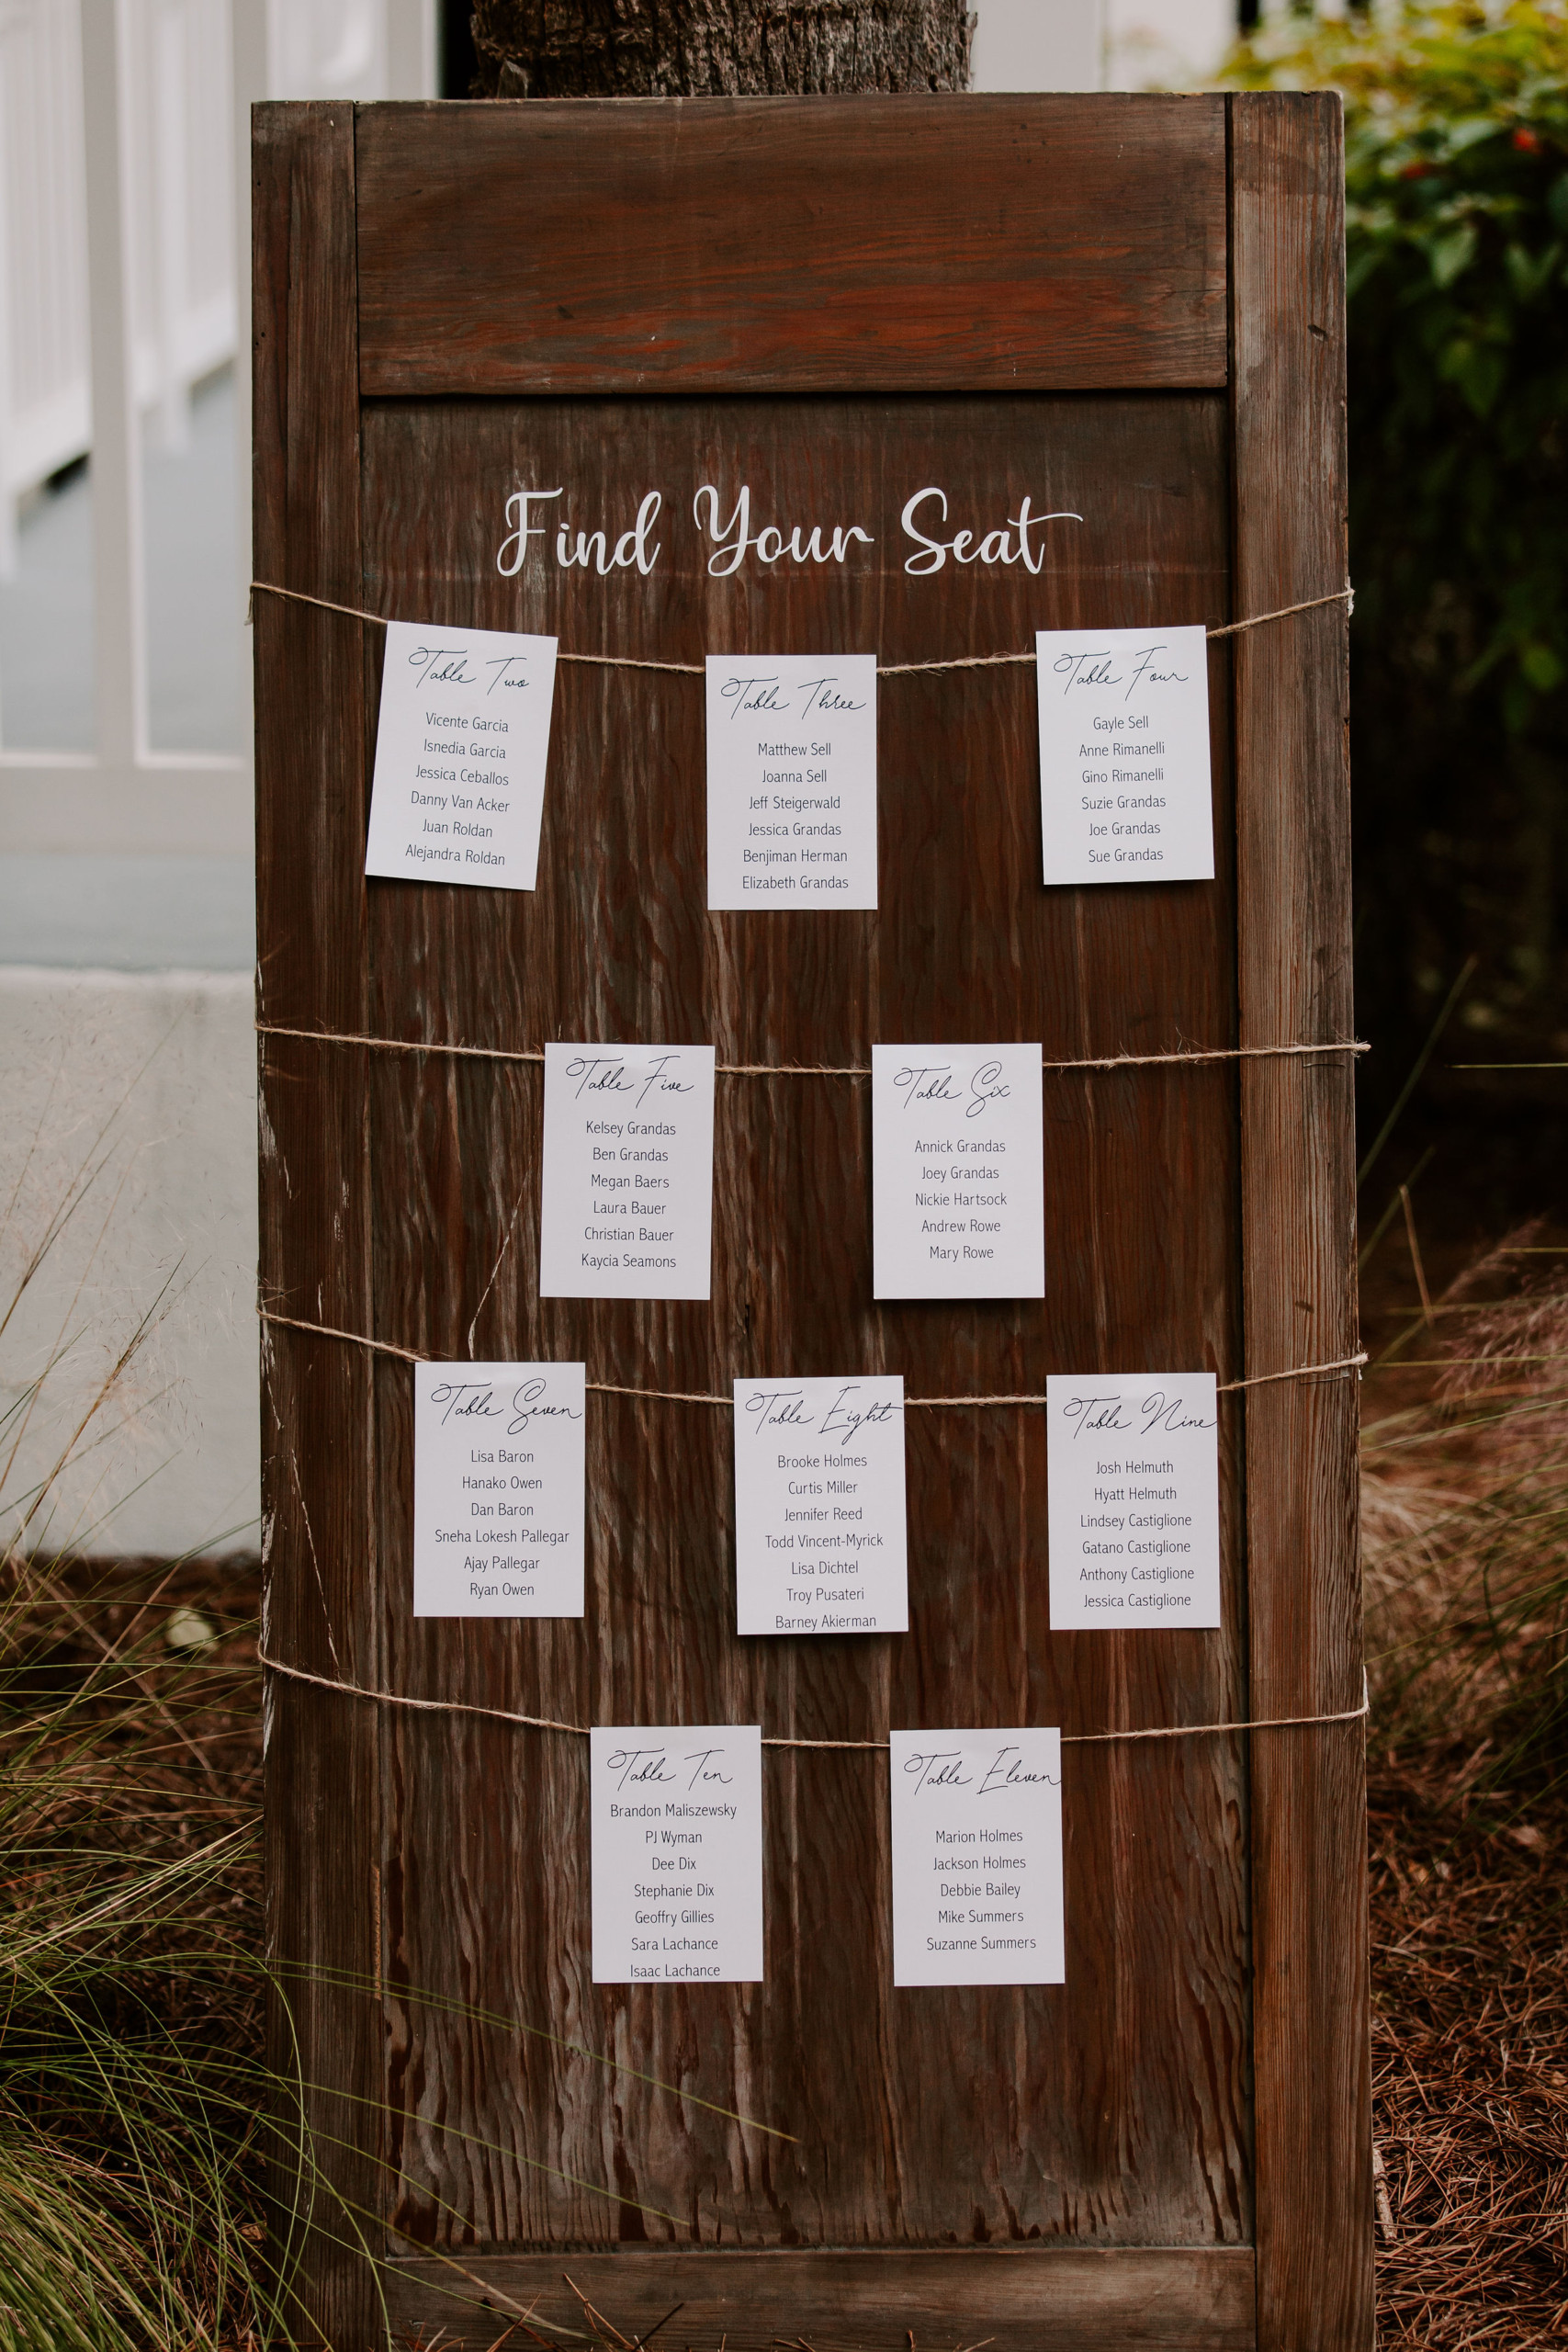 Find Your Seat
Table Two
Vicente Garcia
Isnedia Garcia
Jessica Ceballos
Danny Van Acker
Juan Roldan
Alejandra Roldan
Table Three
Matthew Sell
Joanna Sell
Jeff Steigerwald
Jessica Grandas
Benjiman Herman
Elizabeth Grandas
Table Four
Gayle Sell
Anne Rimanelli
Gino Rimanelli
Suzie Grandas
Joe Grandas
Sue Grandas
Table Five
Kelsey Grandas
Ben Grandas
Megan Baers
Laura Bauer
Christian Bauer
Kaycia Seamons
Table Six
Annick Grandas
Joey Grandas
Nickie Hartsock
Andrew Rowe
Mary Rowe
Table Seven
Lisa Baron
Hanako Owen
Dan Baron
Sneha Lokesh Pallegar
Ajay Pallegar
Ryan Owen
Table Eight
Brooke Holmes
Curtis Miller
Jennifer Reed
Todd Vincent-Myrick
Lisa Dichtel
Troy Pusateri
Barney Akierman
Table Nine
Josh Helmuth
Hyatt Helmuth
Lindsey Castiglione
Gatano Castiglione
Anthony Castiglione
Jessica Castiglione
Table Ten
Brandon Maliszewsky
PJ Wyman
Dee Dix
Stephanie Dix
Geoffry Gillies
Sara Lachance
Isaac Lachance
Table Eleven
Marion Holmes
Jackson Holmes
Debbie Bailey
Mike Summers
Suzanne Summers